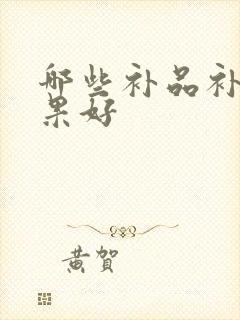 哪些补品补
果好
黄贺